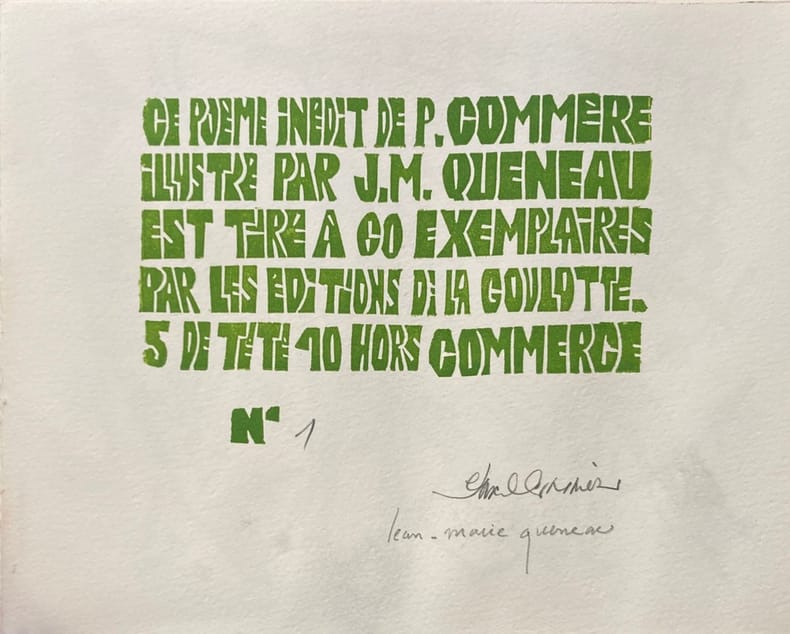 CE POEME INEDIT DE P. COMMERE
ILLUSTRE PAR J.M. QUENEAU
EST TIRÉ À 60 EXEMPLAIRES
PAR LES EDITIONS DE LA GOULOTTE.
5 DE TÊTE 10 HORS COMMERCE
N° 1
Jean-Marie Queneau